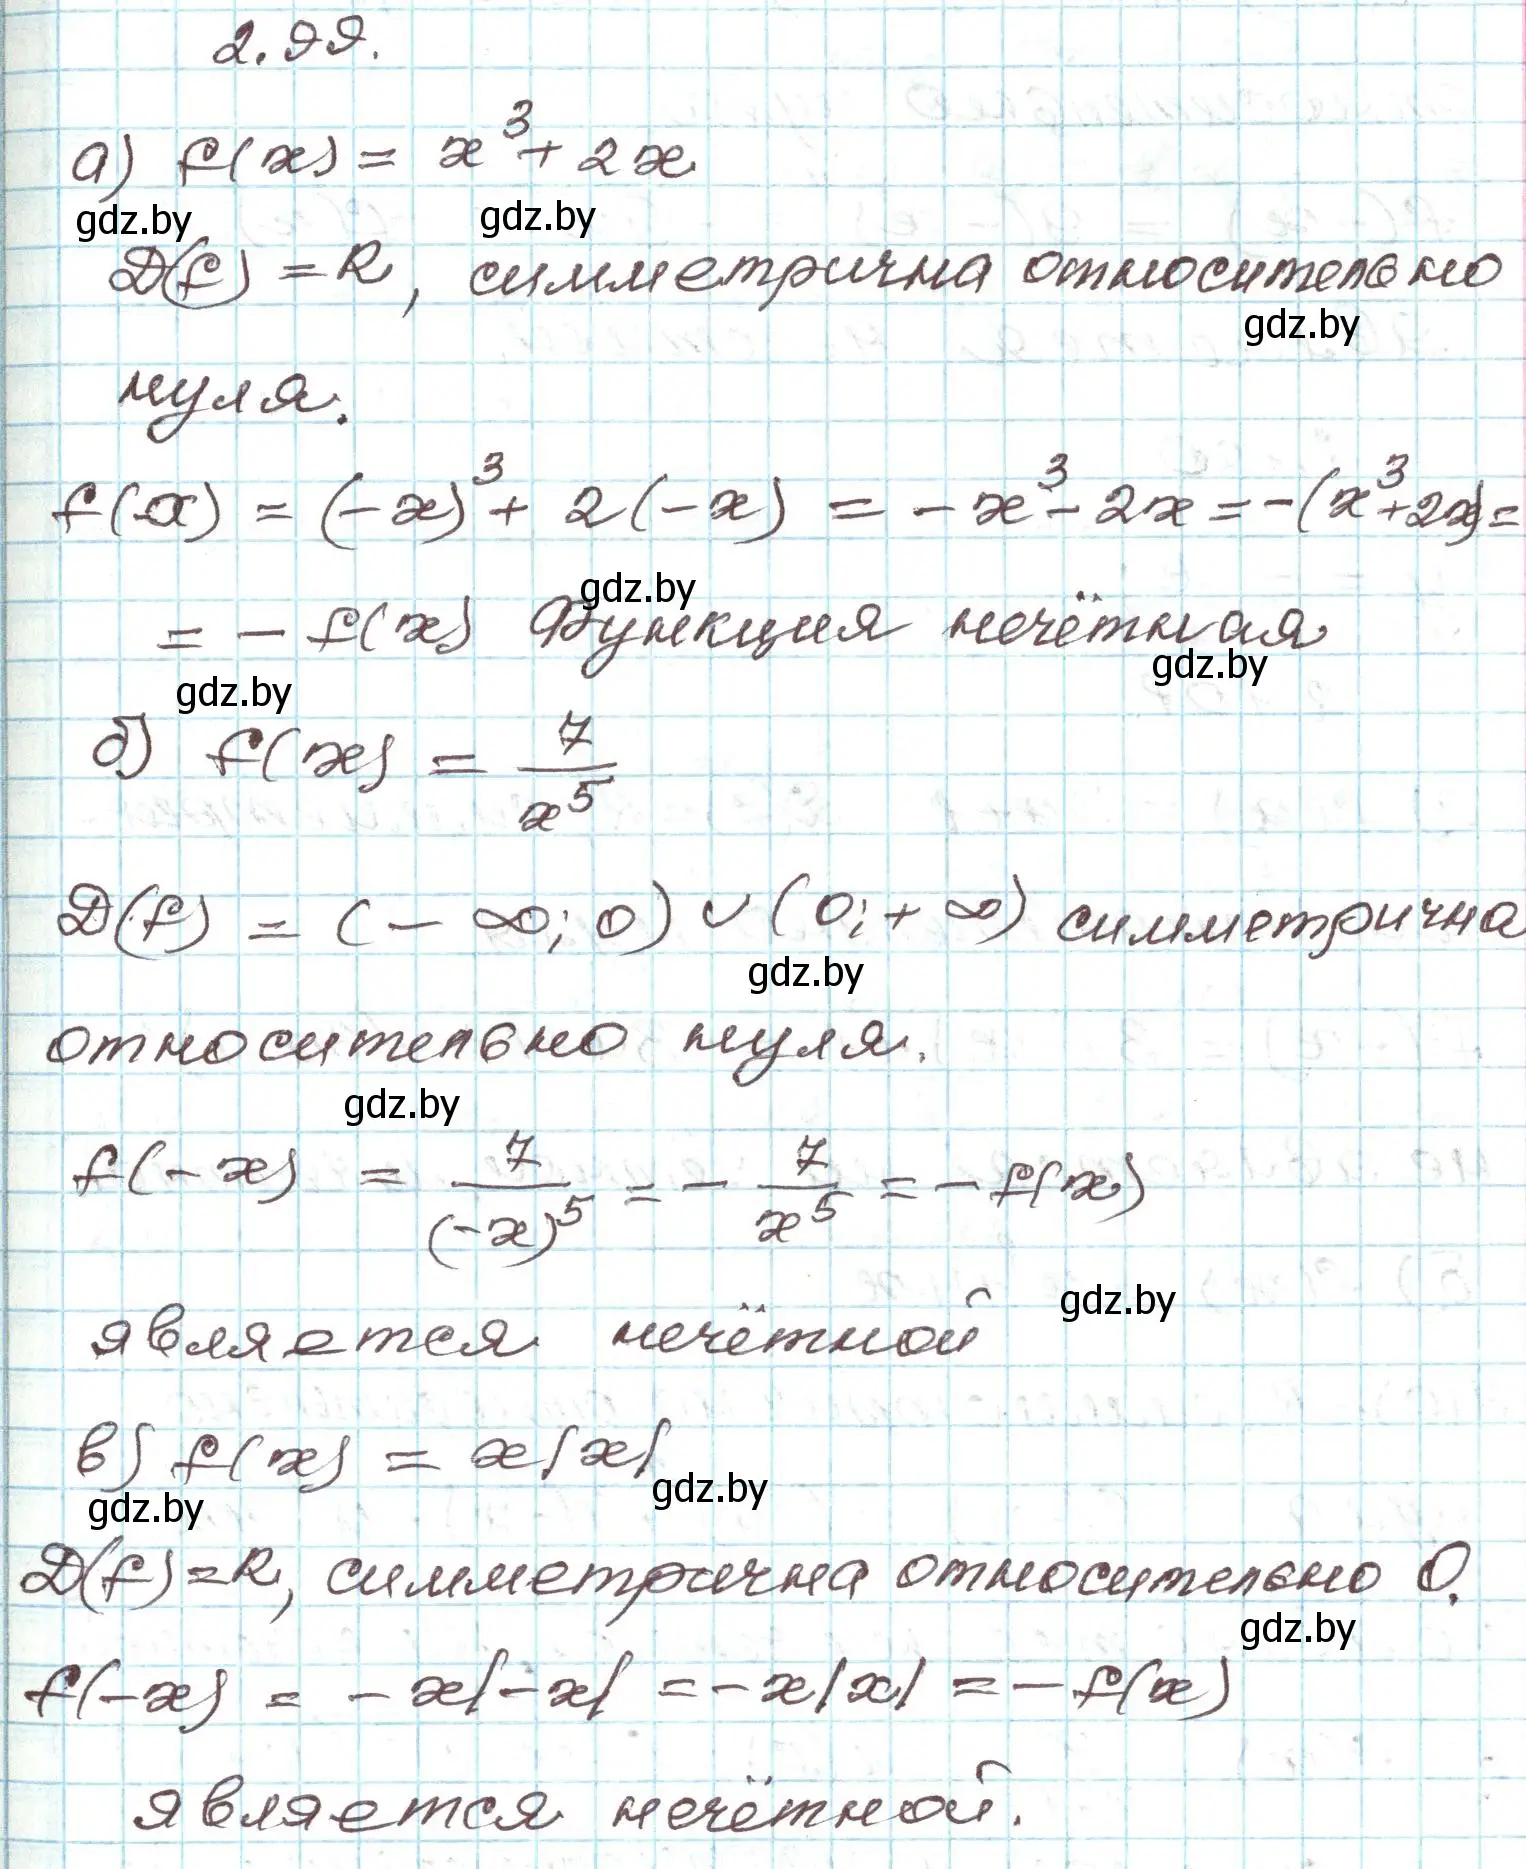 2.99.
а) f(x) = x³ + 2x
gdz.by gdz.by
D(f) = R, симметрична относительно
gdz.by
нуля.
f(-x) = (-x)³ + 2(-x) = -x³ - 2x = -(x³+2x) =
gdz.by
= - f(x) Функция нечётная
gdz.by gdz.by
б) f(x) = 7/x⁵
D(f) = (-∞; 0) ∪ (0; +∞) симметрична
gdz.by
относительно нуля.
gdz.by
f(-x) = 7/(-x)⁵ = - 7/x⁵ = - f(x)
gdz.by
является нечётной
в) f(x) = x|x|
gdz.by gdz.by
D(f) = R, симметрична относительно 0.
gdz.by
f(-x) = -x|-x| = -x|x| = - f(x)
является нечётной.